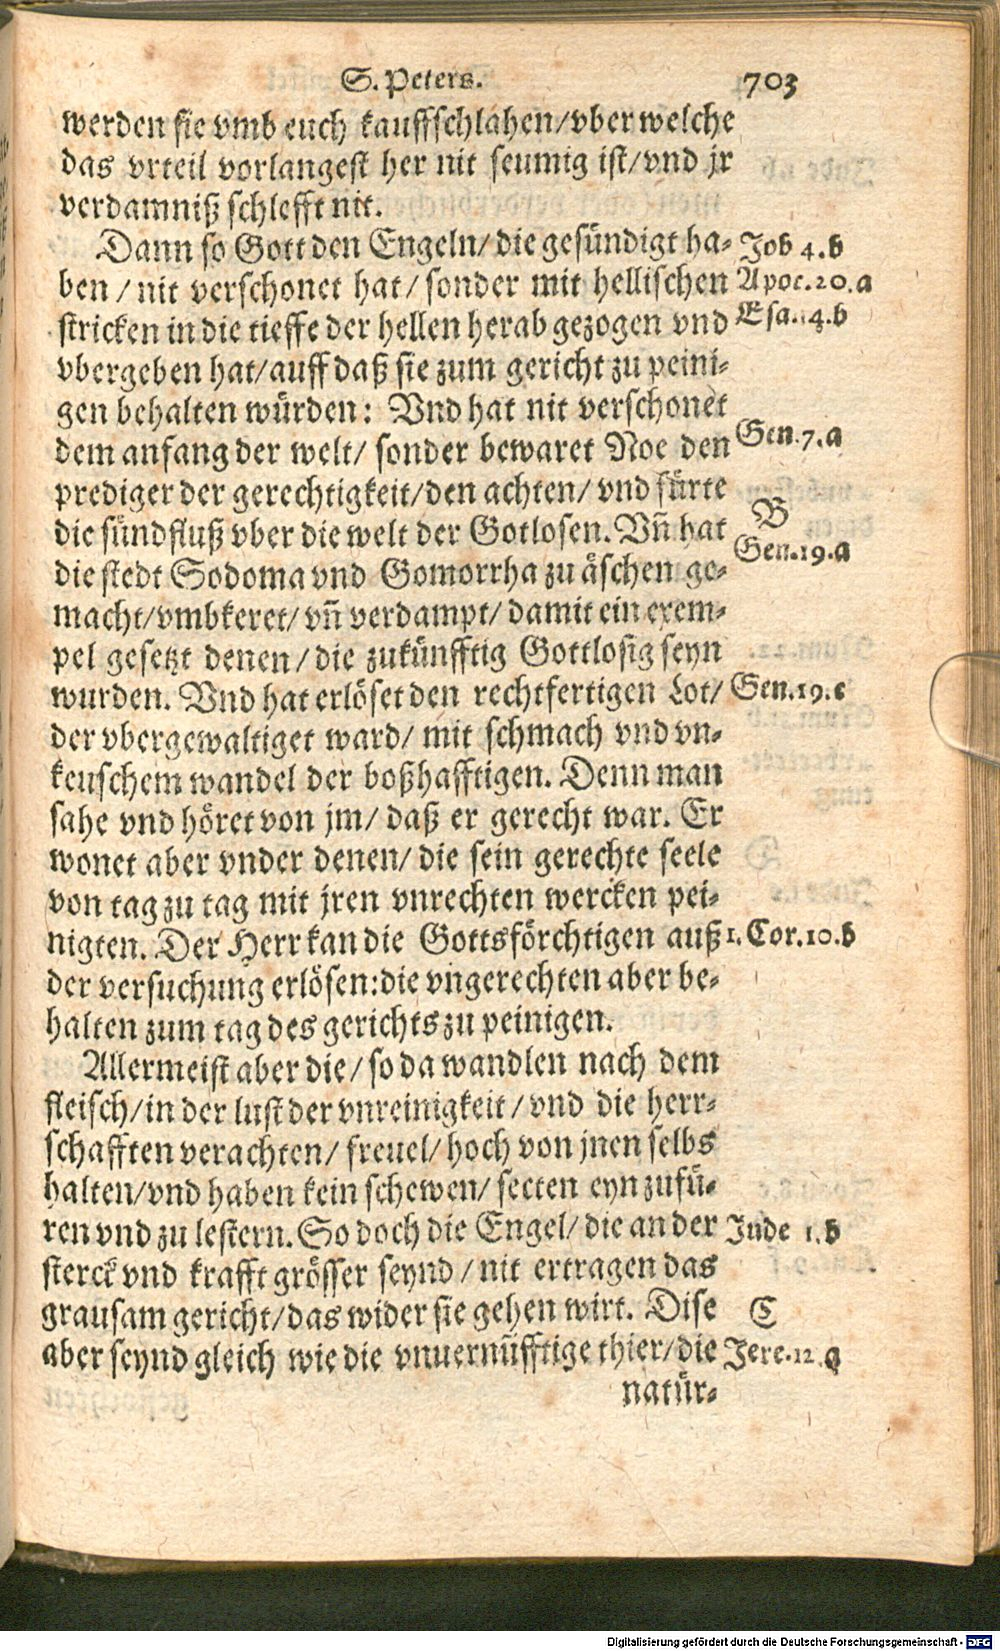 S. Peters. 703
werden sie vmb euch kauffschlahen/vber welche
das vrteil vorlangest her nit seumig ist/vnd jr
verdamniß schlefft nit.
Dann so Gott den Engeln/die gesündigt ha- Job 4.b
ben/nit verschonet hat/sonder mit hellischen Apoc.20.a
stricken in die tieffe der hellen herab gezogen vnd Esa.14.b
vbergeben hat/auff daß sie zum gericht zu peini-
gen behalten würden: Vnd hat nit verschonet
dem anfang der welt/sonder bewaret Noe den Gen.7.a
prediger der gerechtigkeit/den achten/vnd fürte
die sündfluß vber die welt der Gotlosen. Vñ hat B
die stedt Sodoma vnd Gomorrha zu äschen ge- Gen.19.a
macht/vmbkeret/vñ verdampt/damit ein exem-
pel gesetzt denen/die zukünfftig Gottlosig seyn
wurden. Vnd hat erlöset den rechtfertigen Lot/ Gen.19.c
der vbergewaltiget ward/mit schmach vnd vn-
keuschem wandel der boßhafftigen. Denn man
sahe vnd höret von jm/daß er gerecht war. Er
wonet aber vnder denen/die sein gerechte seele
von tag zu tag mit jren vnrechten wercken pei-
nigten. Der Herr kan die Gottsförchtigen auß 1.Cor.10.b
der versuchung erlösen:die vngerechten aber be-
halten zum tag des gerichts zu peinigen.
Allermeist aber die/so da wandlen nach dem
fleisch/in der lust der vnreinigkeit/vnd die herr-
schafften verachten/freuel/hoch von jnen selbs
halten/vnd haben kein schewen/secten eyn zufü-
ren vnd zu lestern. So doch die Engel/die an der Jude 1.b
sterck vnd krafft grösser seynd/nit ertragen das
grausam gericht/das wider sie gehen wirt. Dise C
aber seynd gleich wie die vnuernüfftige thier/die Jere.12.a
natür-
Digitalisierung gefördert durch die Deutsche Forschungsgemeinschaft - DFG